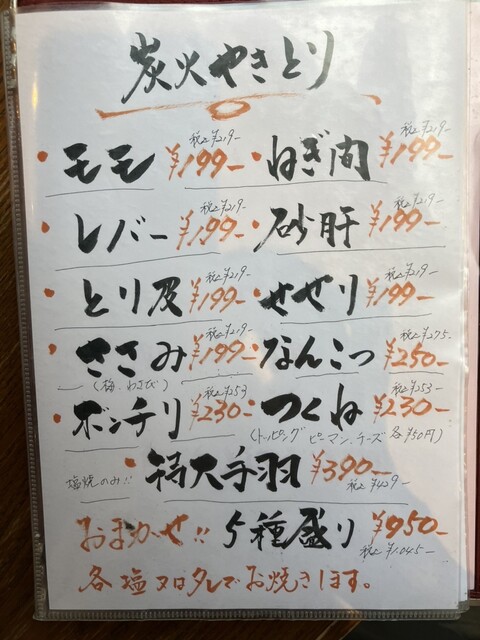 炭火やきとり
モモ ¥199- 税込¥219- ねぎ間 ¥199- 税込¥219-
レバー ¥199- 税込¥219- 砂肝 ¥199- 税込¥219-
とり皮 ¥199- 税込¥219- せせり ¥199- 税込¥219-
ささみ ¥199- 税込¥219- なんこつ ¥250- 税込¥275-
(梅.わさび)
ボンチリ ¥230- 税込¥253 つくね ¥230- 税込¥253-
(トッピング ピーマン.チーズ 各¥50円)
塩焼のみ!! 特大手羽 ¥390- 税込¥429-
おまかせ!! 5種盛り ¥950- 税込¥1.045-
各塩又はタレでお焼きします。